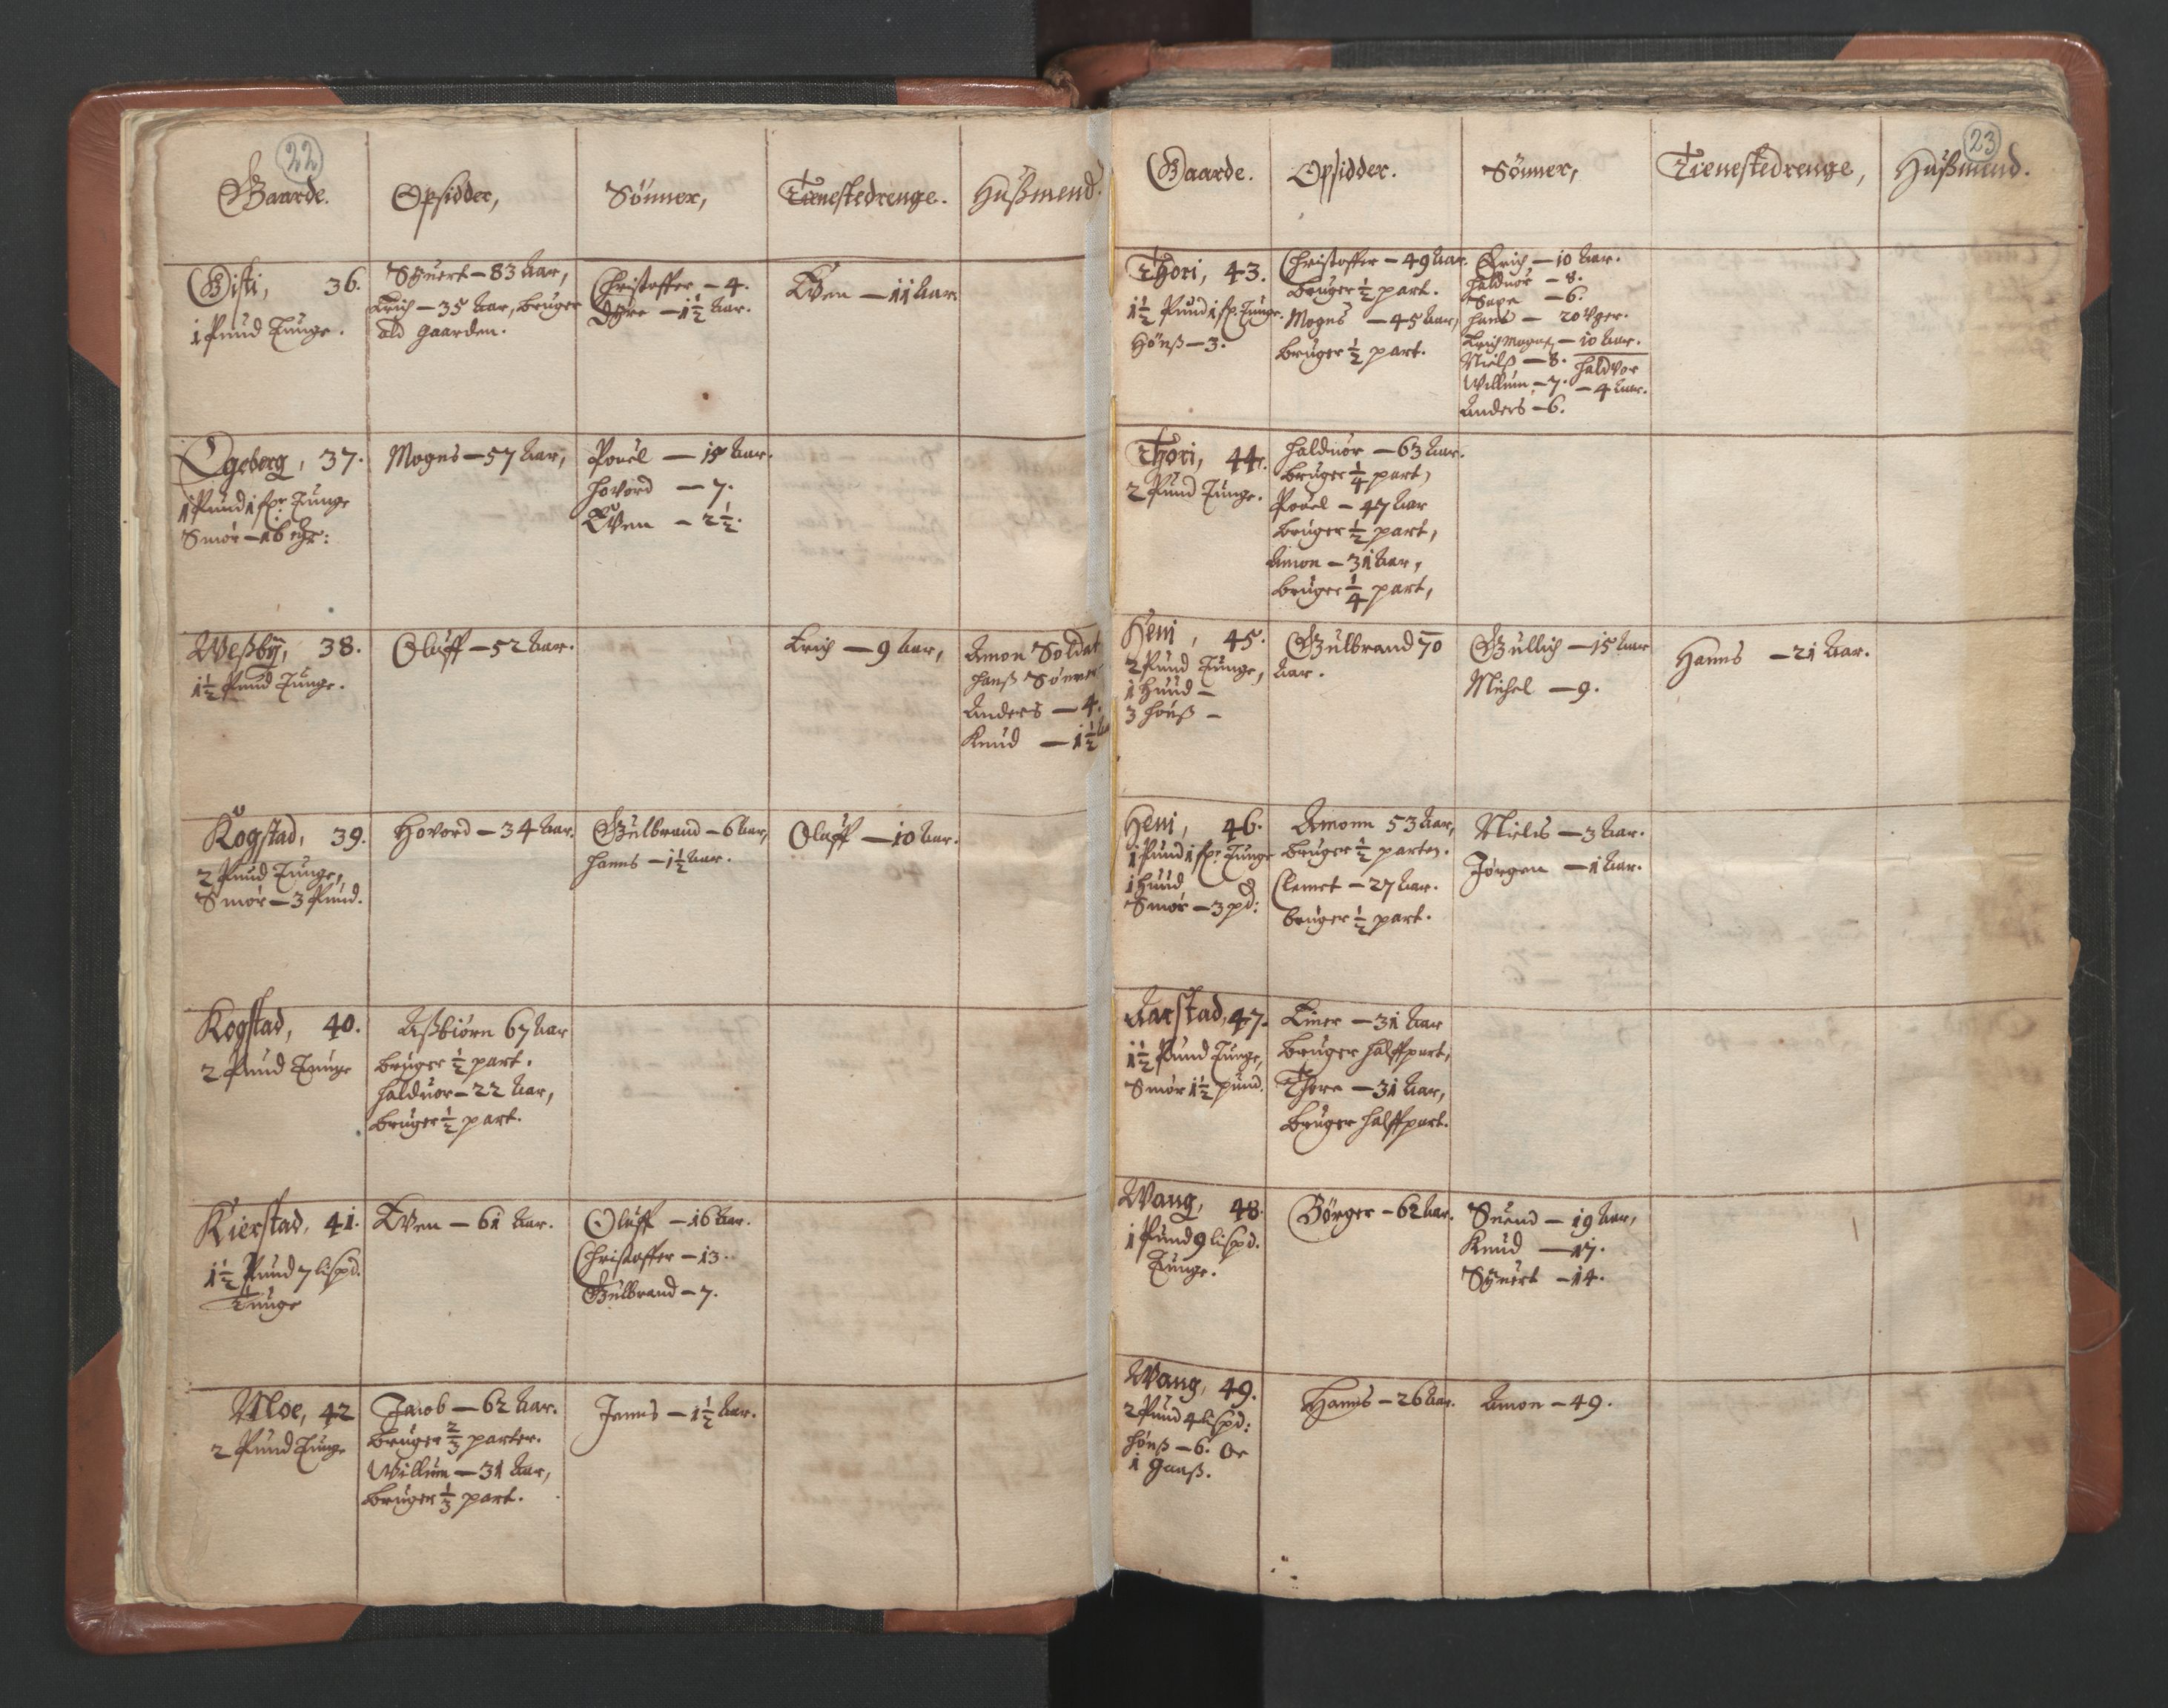 22
Gaarde.
Opsidder,
Sönner,
Tienestedrenge.
Hußmend.
Gisti, 36.
1 Pund Tunge.
Syuert – 83 Aar,
Erich – 35 Aar, bruger
ald gaarden.
Christoffer – 4.
Dyre – 1½ Aar.
Even – 11 Aar.
Egeberg, 37.
1 Pund 1 sp: Tunge
Smör – 16
Mogns – 57 Aar,
Pouel – 15 Aar.
Hovord – 7.
Even – 2½.
Weßby, 38.
1½ Pund Tunge.
Oluff – 52 Aar.
Erich – 9 Aar,
Amon Soldat
hanß Sönner
Anders – 4.
Knud – 1½
Kogstad, 39.
2 Pund Tunge,
Smör – 3 Pund.
Hovord – 34 Aar.
Gulbrand – 6 Aar,
Hanns – 1½ Aar.
Oluff – 10 Aar.
Kogstad, 40.
2 Pund Tunge
Aßbiörn 67 Aar
bruger ½ part.
Halduor – 22 Aar,
bruger ½ part.
Kierstad, 41.
1½ Pund 7 lispd.
Tunge
Even – 61 Aar.
Oluff – 16 Aar.
Christoffer – 13.
Gulbrand – 7.
Moe, 42
2 Pund Tunge
Jacob – 62 Aar.
bruger ⅔ parter.
Willum – 31 Aar,
bruger ⅓ part.
Jenns – 1½ Aar.
23
Gaarde.
Opsidder.
Sönner,
Tienestedrenge,
Hußmend.
Thori, 43.
1½ Pund 1 sp. Tunge.
Hönß – 3.
Christoffer – 49 Aar.
bruger ½ part.
Mogns – 45 Aar,
bruger ½ part.
Erich – 10 Aar.
Halduor – 8.
– 6.
Hans – 20 Vger.
Erich Mognß – 10 Aar.
Nielß – 8. Haldvor
Willum – 7. – 4 Aar.
Anders – 6.
Thori, 44.
2 Pund Tunge.
Halduor – 63 Aar.
bruger ¼ part,
Pouel – 47 Aar
bruger ½ part,
Amon – 31 Aar,
bruger ¼ part,
Heni, 45.
2 Pund Tunge,
1 Huud –
3 Hönß –
Gulbrand 70
Aar.
Gullich – 15 Aar
Michel – 9.
Hanns – 21 Aar.
Heni, 46.
1 Pund 1 sp: Tunge
1 Huud &
Smör – 3 pd:
Amonn 53 Aar,
bruger ½ parten.
Clemet – 27 Aar.
bruger ½ part.
Niels – 3 Aar.
Jörgen – 1 Aar.
Aarstad, 47.
1½ Pund Tunge,
Smör 1½ pund.
Einer – 31 Aar
bruger halffpart,
Thore – 31 Aar,
bruger halffpart.
Wang, 48.
1 Pund 9 lispd.
Tunge.
Börger – 62 Aar.
Suend – 19 Aar,
Knud – 17.
Syuert – 14.
Wang, 49.
2 Pund 4 lispd:
Hönß – 6. oc
1 gaaß.
Hanns – 26 Aar.
Amon – 49.